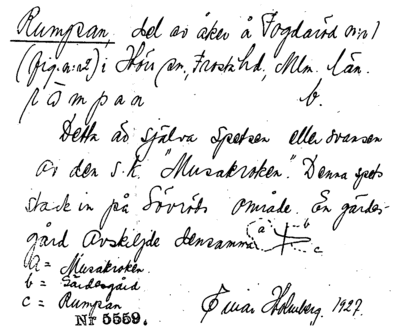 Rumpan, del av åker å Fogdaröd nr 1
(fig. a: n2) i Höör sn, Frosta hd, Mlm. län.
rumpan b.
Detta är själva spetsen eller svansen
av den s.k. "Musakroken". Denna spets
stack in på Sövröds område. En gärdes-
gård avskiljde densamma a b c
a = Musakroken
b = Gärdesgård
c = Rumpan
Einar Holmberg. 1927.
Nr 5559.